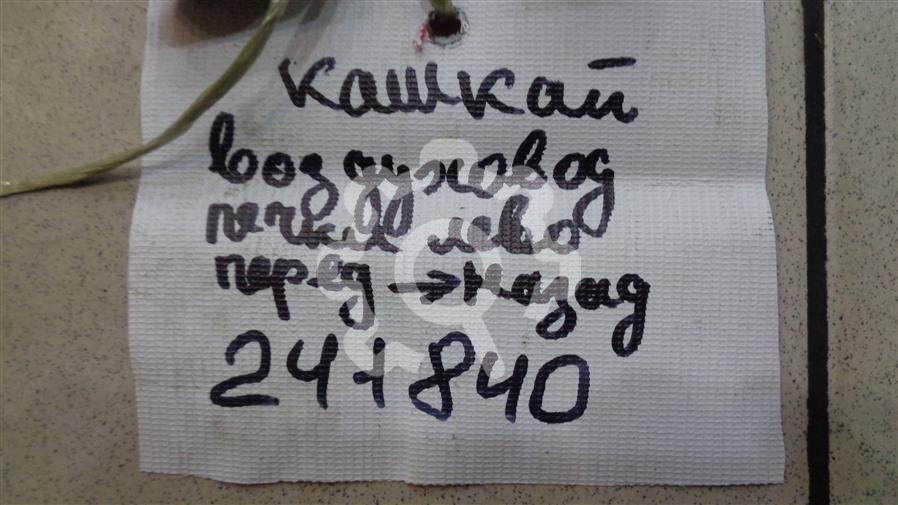 кашкай
воздуховод
печки лево
перед → назад
24+840